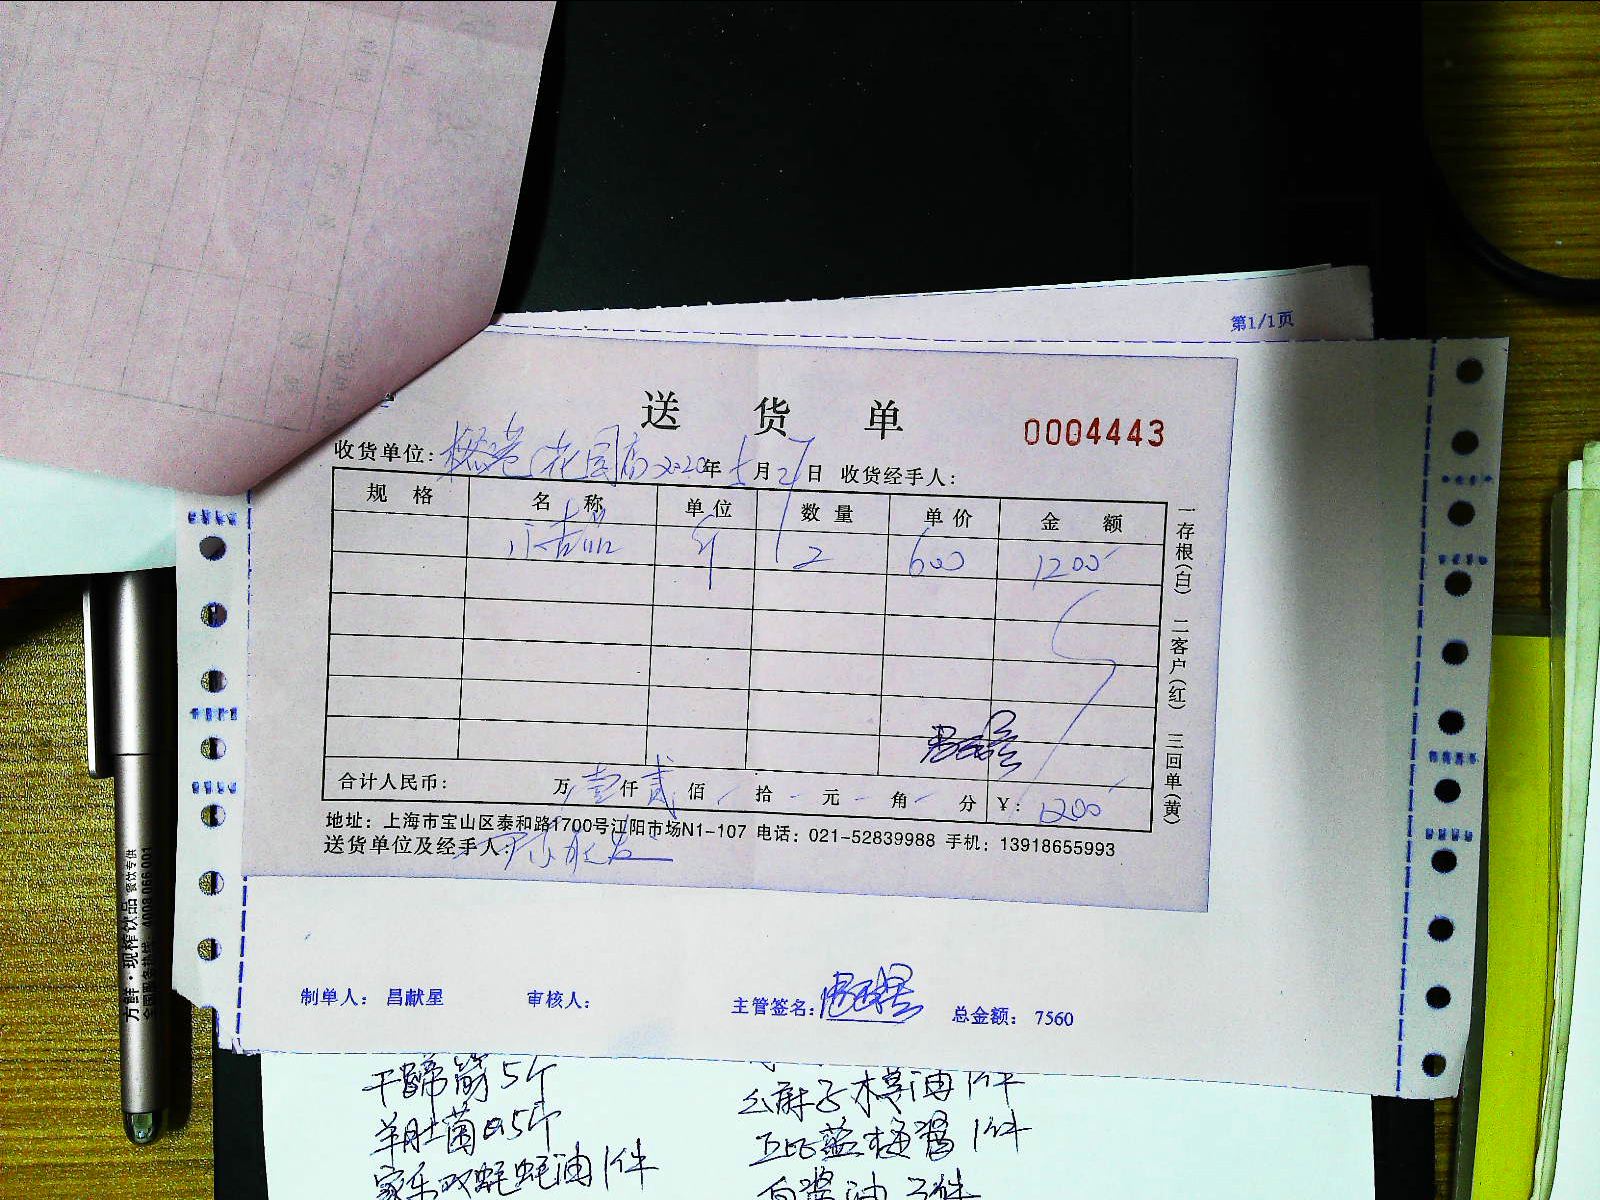 第1/1页
送 货 单
0004443
收货单位: 花园店 2020年 5月27日 收货经手人:
规 格 名 称 单位 数 量 单 价 金 额
斤 2 600 1200
一存根(白) 二客户(红) 三回单(黄)
合计人民币: 万 壹仟 贰佰 拾 元 角 分 ¥: 1200
地址: 上海市宝山区泰和路1700号江阳市场N1-107 电话: 021-52839988 手机: 13918655993
送货单位及经手人:
制单人: 昌献星 审核人: 主管签名: 总金额: 7560
干蹄筋 5斤
羊肚菌 5斤
家乐双蚝蚝油 1件
木姜油 1件
1件
方鲜·现榨饮品 餐饮专供